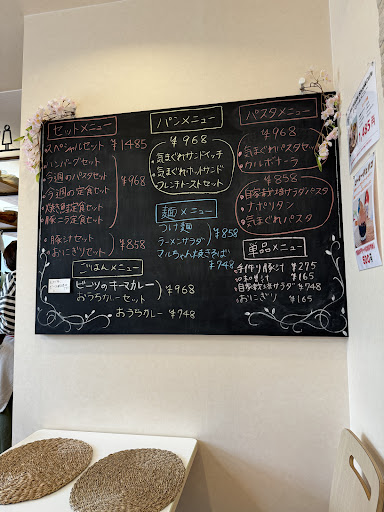 セットメニュー
・スペシャルセット ¥1485
・ハンバーグセット
・今週のパスタセット
・今週の定食セット
・豚ニラ定食セット
¥968
・豚汁セット
・おにぎりセット
¥858
ごはんメニュー
ビーツのキーマカレー
おうちカレーセット
¥968
おうちカレー ¥748
パンメニュー
¥968
・気まぐれサンドイッチ
・気まぐれホットサンド
・フレンチトーストセット
麺メニュー
つけ麺
ラーメンサラダ
¥858
マルちゃん焼きそば
¥748
パスタメニュー
¥968
・気まぐれパスタセット
・カルボナーラ
¥858
・自家製ツナサラダパスタ
・ナポリタン
・気まぐれパスタ
単品メニュー
・手作り豚汁 ¥275
¥165
・自家製ツナサラダ ¥748
・おにぎり ¥165